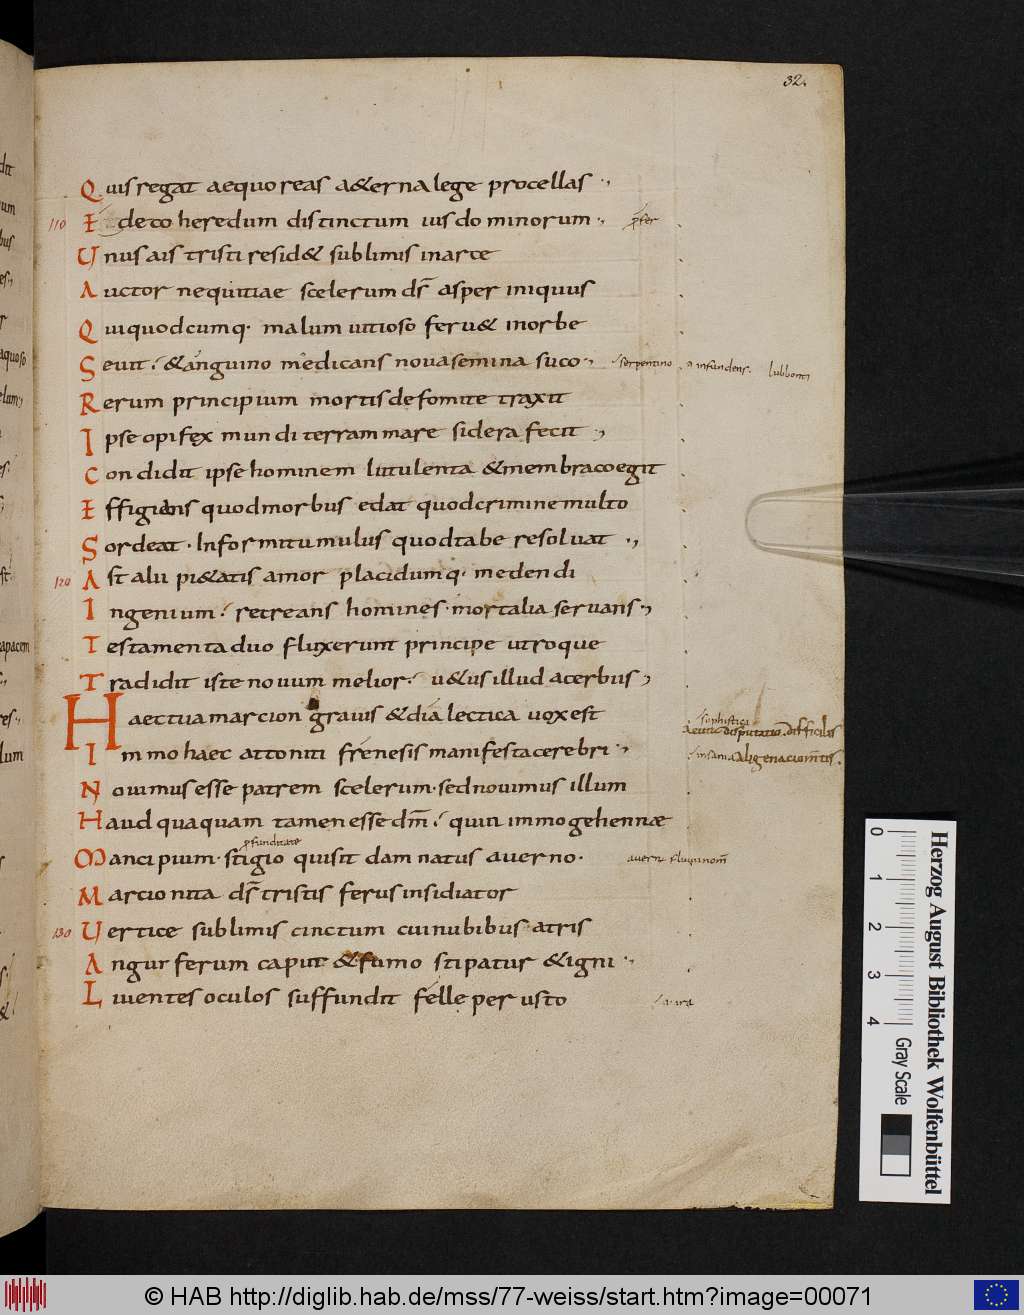 32.
Quis regat aequoreas aeterna lege procellas
110 Edeto heredum distinctum ius dominorum
Unus ais tristi resid& sublimis inarce
Auctor nequitiae scelerum ds̄ asper iniquus
Quiquodcumq· malum uitioso feru& inorbe
Seuit · &anguino medicans nouasemina suco serpentino infundens. lubbonti
Rerum principium mortis defomite traxit
Ipse opifex mundi terram mare sidera fecit
Condidit ipse hominem lutulenta &membracoegit
Effigiens quodmorbus edat quodcrimine multo
Sordeat · Informi tumulus quodtabe resoluat
120 Ast alii pi&atis amor placidumq· medendi
Ingenium · recreans homines · mortalia seruans
Testamenta duo fluxerunt principe utroque
Tradidit iste nouum melior · u&us illud acerbus
Haectuamarcion grauis &dialectica uox est
sophistica
disputatio difficilis
Immohaec attoniti frenesis manifestacerebri insania
Nouimus esse patrem scelerum · sednouimus illum
Haudquaquam tamen esse dm̄ · quin immo gehennae
pfunditate
Mancipium · stigio quisit damnatus auerno.
Marcionita ds̄ tristis ferus insidiator
130 Uertice sublimis cinctum cuinubibus atris
Anguiferum caput &fumo stipatur &igni
Liuentes oculos suffundit felle perusto
0 1 2 3 4
Herzog August Bibliothek Wolfenbüttel
Gray Scale
© HAB http://diglib.hab.de/mss/77-weiss/start.htm?image=00071